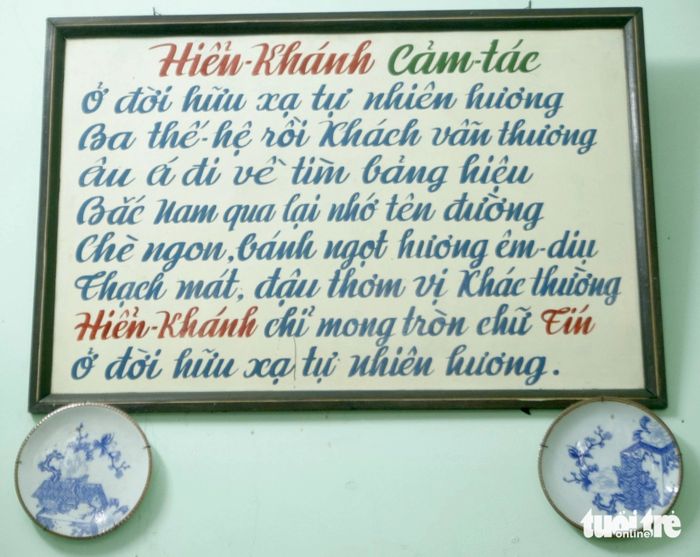 Hiển-Khánh Cảm-tác
Ở đời hữu xạ tự nhiên hương
Ba thế-hệ rồi Khách vẫn thương
Âu á đi về tìm bảng hiệu
Bắc Nam qua lại nhớ tên đường
Chè ngon, bánh ngọt hương êm-dịu
Thạch mát, đậu thơm vị Khác thường
Hiển-Khánh chỉ mong tròn chữ Tín
Ở đời hữu xạ tự nhiên hương.
tuổi trẻ
online